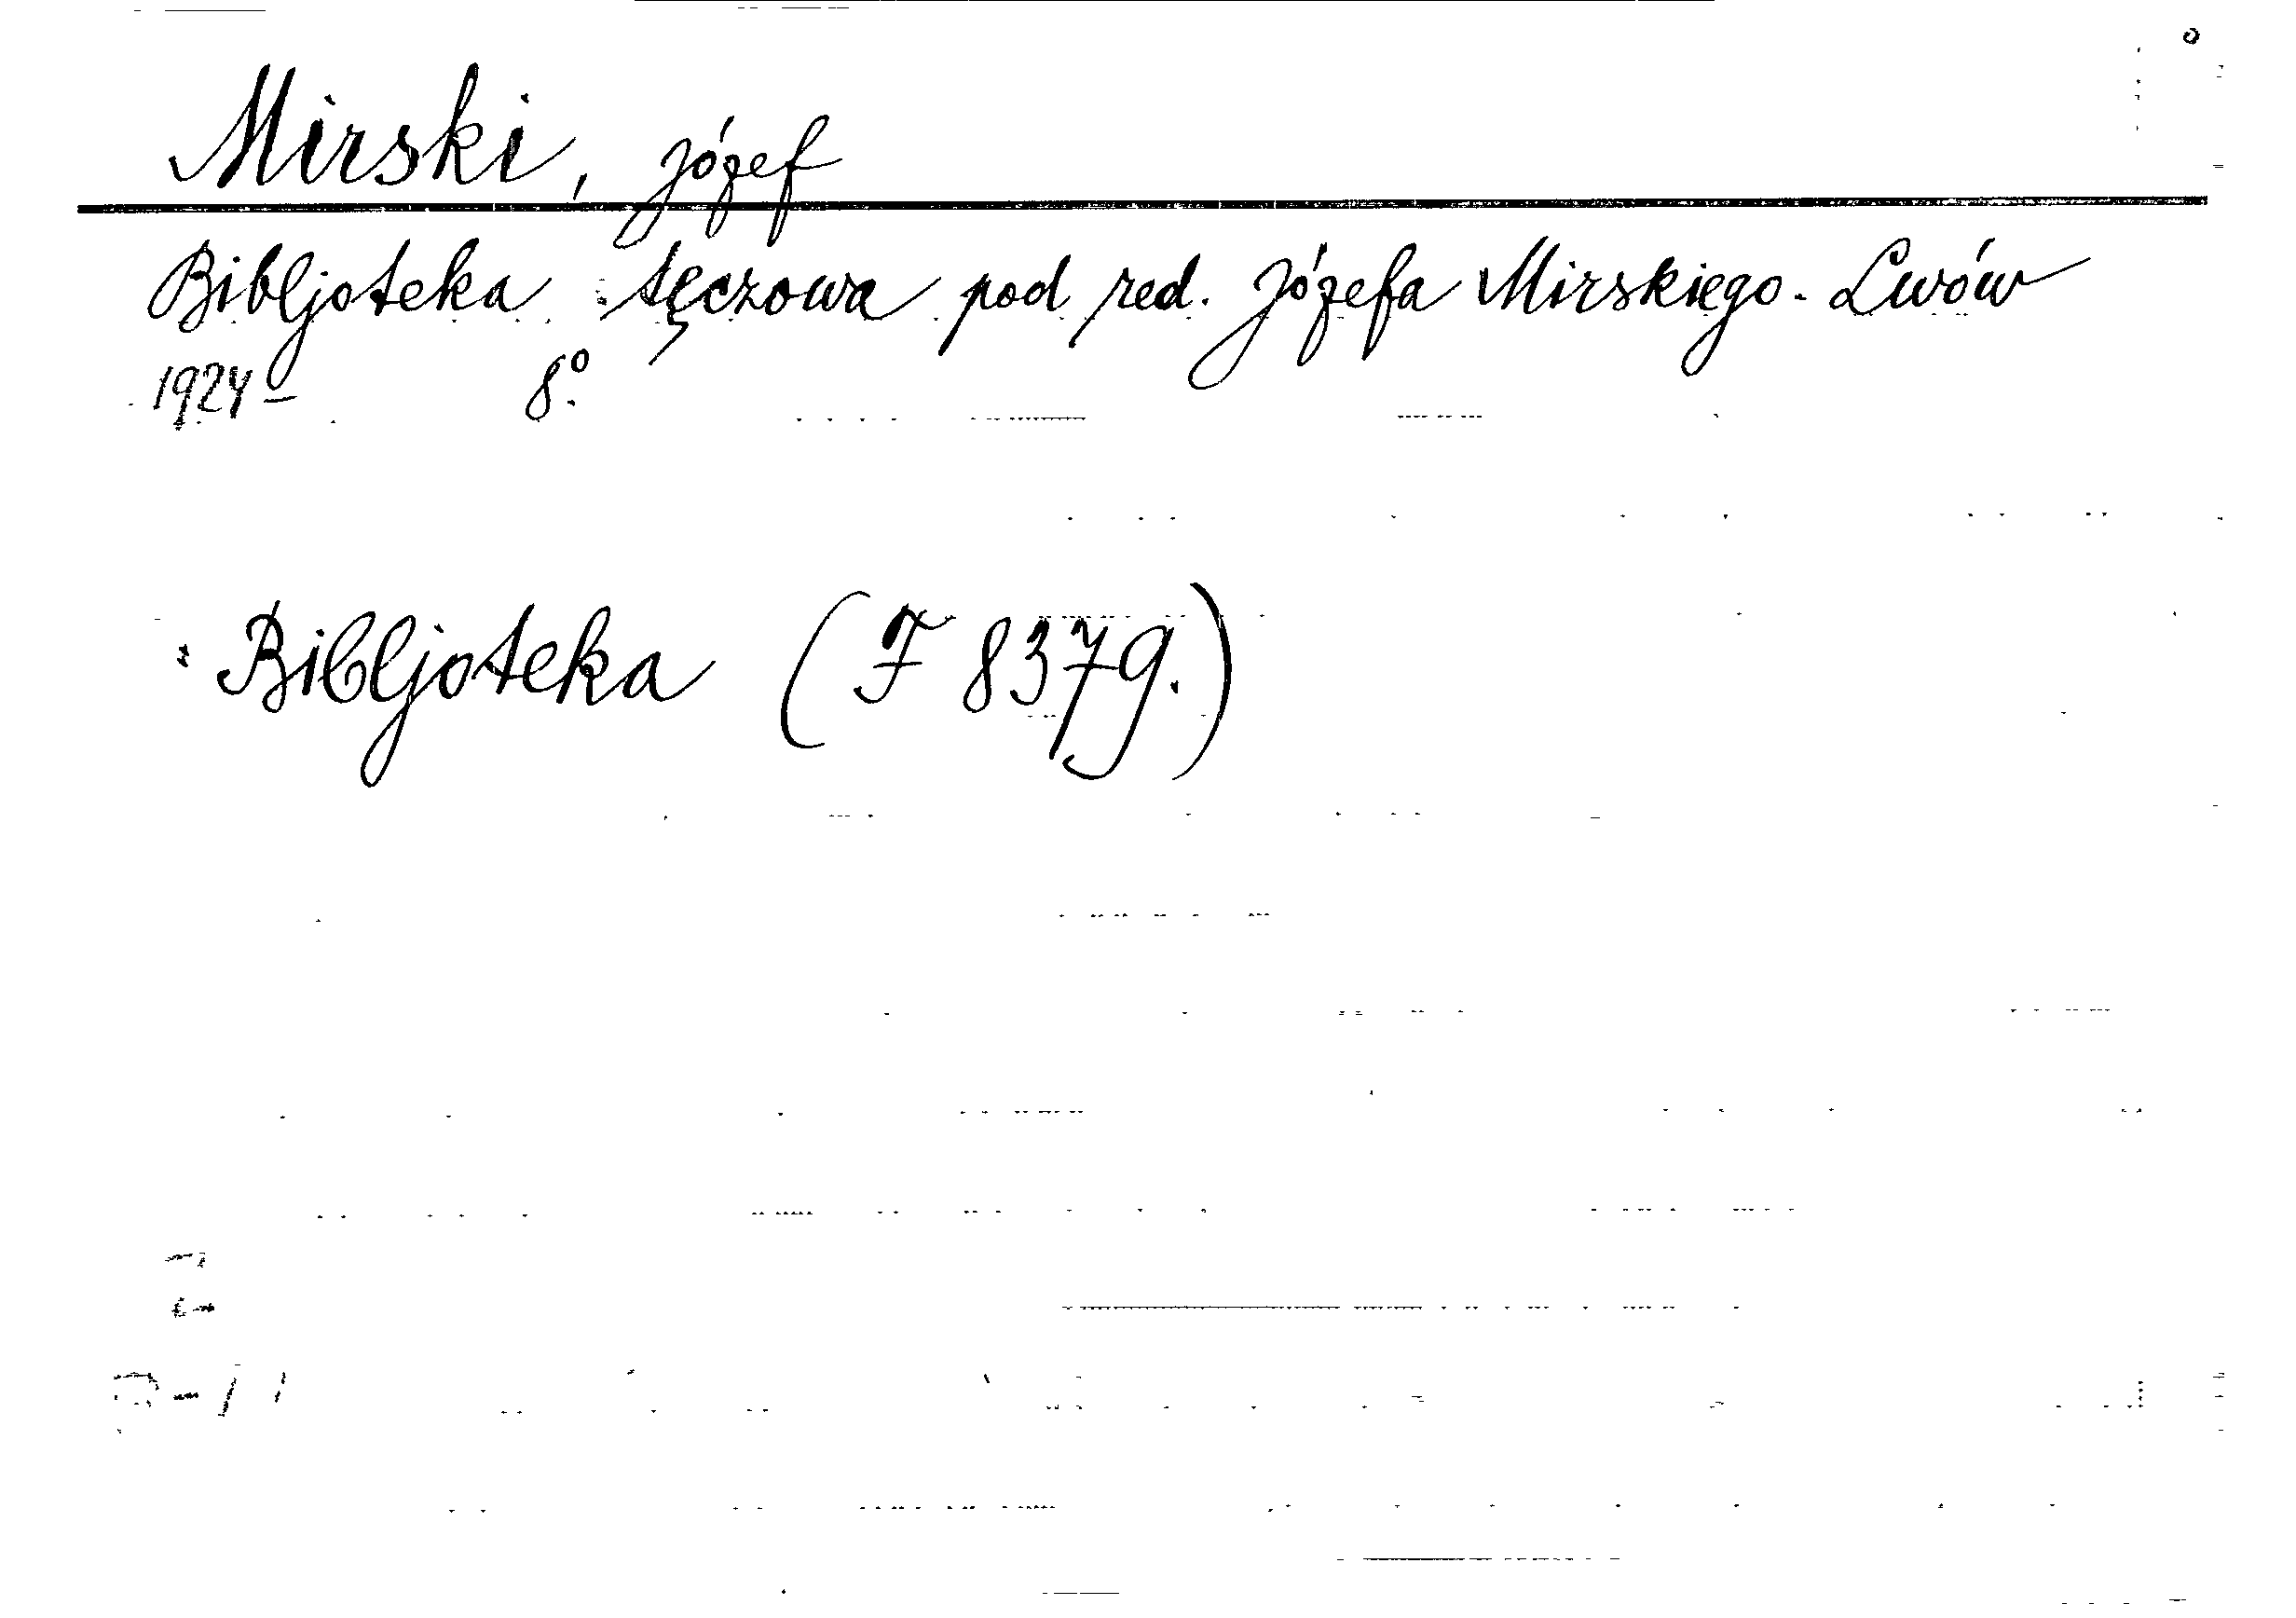 Mirski, Józef
Bibljoteka tęczowa pod red. Józefa Mirskiego. Lwów
1924– 8º.
Bibljoteka (F 8379.)